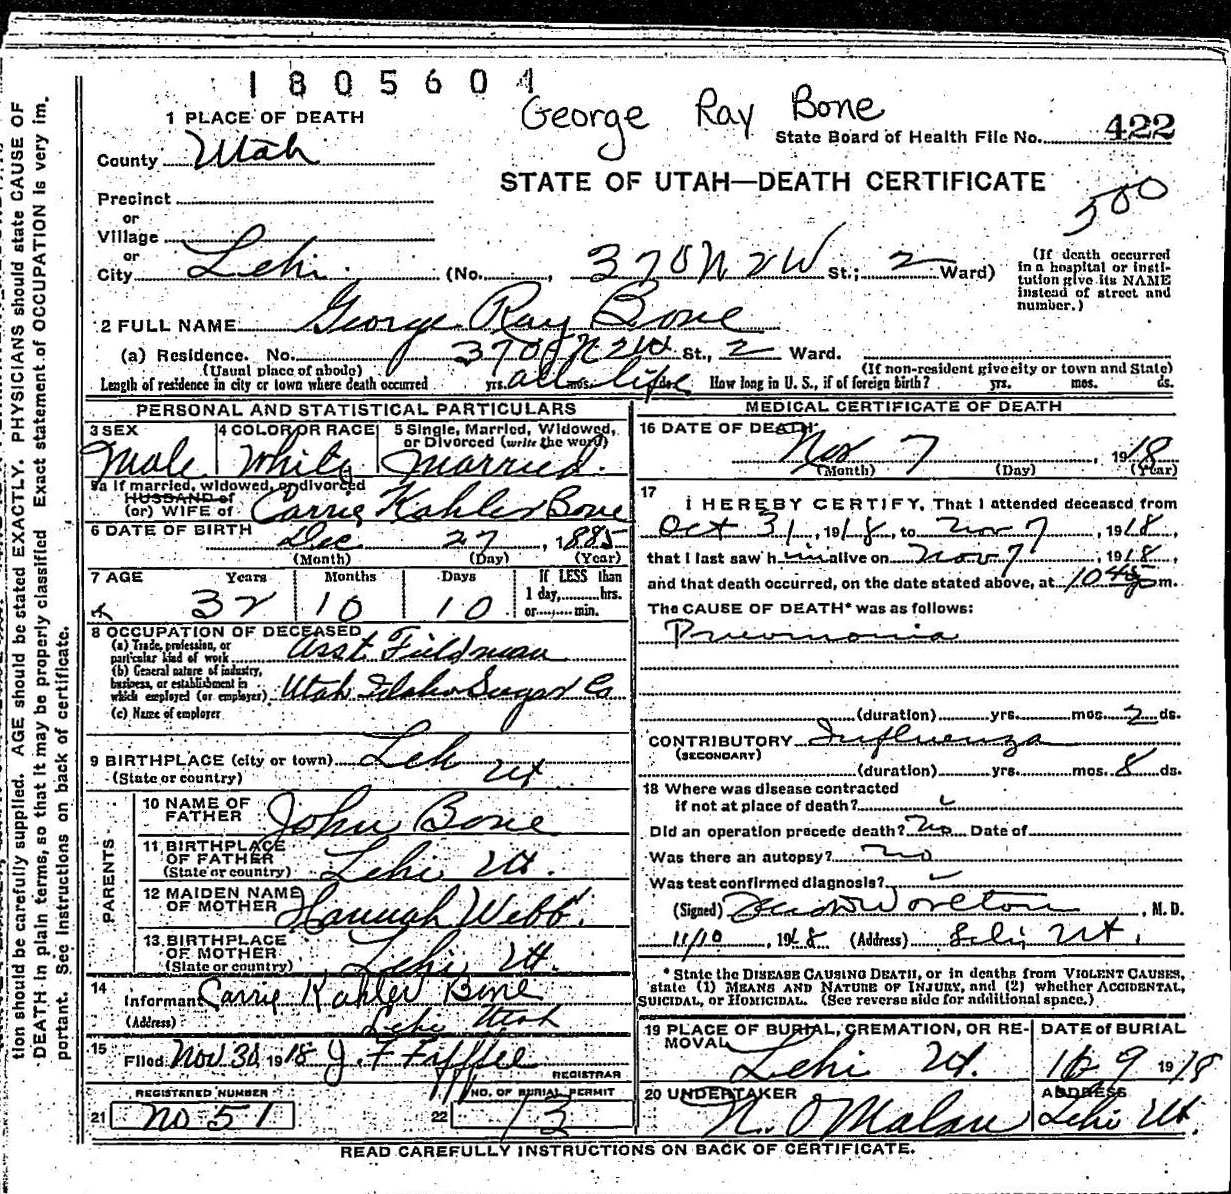 1805604
George Ray Bone
1 PLACE OF DEATH
State Board of Health File No. 422
County Utah
STATE OF UTAH—DEATH CERTIFICATE
500
Precinct
or
Village
or
City Lehi (No. 370 N 2 W St.; 2 Ward)
(If death occurred in a hospital or institution give its NAME instead of street and number.)
2 FULL NAME George Ray Bone
(a) Residence. No. 370 N 2 W St., 2 Ward.
(Usual place of abode) (If non-resident give city or town and State)
Length of residence in city or town where death occurred yrs. all mos. life ds. How long in U. S., if of foreign birth? yrs. mos. ds.
PERSONAL AND STATISTICAL PARTICULARS
3 SEX 4 COLOR OR RACE 5 Single, Married, Widowed, or Divorced (write the word)
Male White Married.
5a If married, widowed, or divorced
HUSBAND of
(or) WIFE of Carrie Kahler Bone
6 DATE OF BIRTH Dec 27, 1885
(Month) (Day) (Year)
7 AGE Years Months Days If LESS than
1 day, hrs.
or min.
32 10 10
8 OCCUPATION OF DECEASED
(a) Trade, profession, or particular kind of work Asst. Fieldman
(b) General nature of industry, business, or establishment in which employed (or employer) Utah Idaho Sugar Co
(c) Name of employer
9 BIRTHPLACE (city or town) Lehi Ut
(State or country)
PARENTS
10 NAME OF FATHER John Bone
11 BIRTHPLACE OF FATHER Lehi Ut.
(State or country)
12 MAIDEN NAME OF MOTHER Hannah Webb.
13 BIRTHPLACE OF MOTHER Lehi, Ut.
(State or country)
14 Informant Carrie Kahler Bone
(Address) Lehi Utah
15 Filed Nov 30 1918 J. F.
REGISTRAR
REGISTERED NUMBER NO. OF BURIAL PERMIT
21 No 51 22 13
MEDICAL CERTIFICATE OF DEATH
16 DATE OF DEATH
Nov 7, 1918
(Month) (Day) (Year)
17
I HEREBY CERTIFY, That I attended deceased from
Oct 31, 1918, to Nov 7, 1918
that I last saw him alive on Nov 7, 1918
and that death occurred, on the date stated above, at 10 45 m.
The CAUSE OF DEATH* was as follows:
Pneumonia
(duration) yrs. mos. 2 ds.
CONTRIBUTORY Influenza
(SECONDARY)
(duration) yrs. mos. 8 ds.
18 Where was disease contracted
if not at place of death?
Did an operation precede death? No Date of
Was there an autopsy? no
Was test confirmed diagnosis?
(Signed) Worlton, M. D.
11/10, 1918 (Address) Lehi Ut.
* State the DISEASE CAUSING DEATH, or in deaths from VIOLENT CAUSES, state (1) MEANS AND NATURE OF INJURY, and (2) whether ACCIDENTAL, SUICIDAL, or HOMICIDAL. (See reverse side for additional space.)
19 PLACE OF BURIAL, CREMATION, OR REMOVAL DATE of BURIAL
Lehi Ut. 9 1918
20 UNDERTAKER ADDRESS
N. O Malan Lehi Ut.
READ CAREFULLY INSTRUCTIONS ON BACK OF CERTIFICATE.
tion should be carefully supplied. AGE should be stated EXACTLY. PHYSICIANS should state CAUSE OF
DEATH in plain terms, so that it may be properly classified. Exact statement of OCCUPATION is very im-
portant. See Instructions on back of certificate.